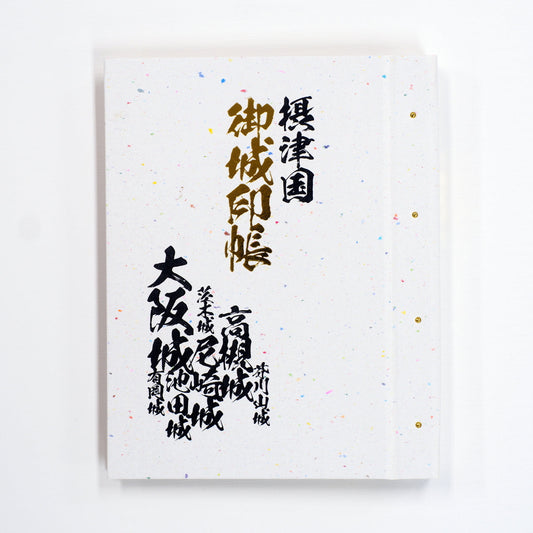 摂津国
御城印帳
芥川山城
高槻城
茨木城
尼崎城
池田城
大阪城
有岡城